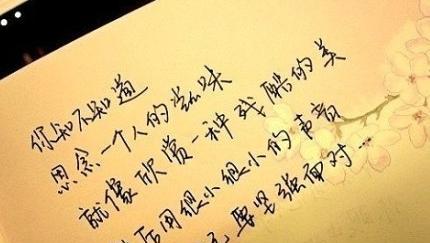 你知不知道
思念一个人的滋味
就像欣赏一种残酷的美
后用很小很小的声音
要坚强面对…